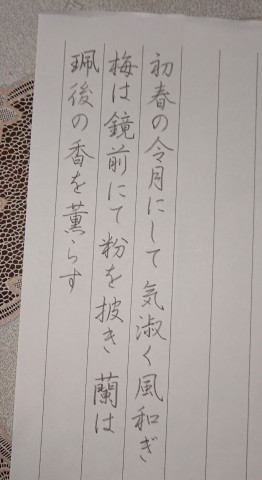 初春の令月にして気淑く風和ぎ
梅は鏡前にて粉を披き蘭は
珮後の香を薫らす